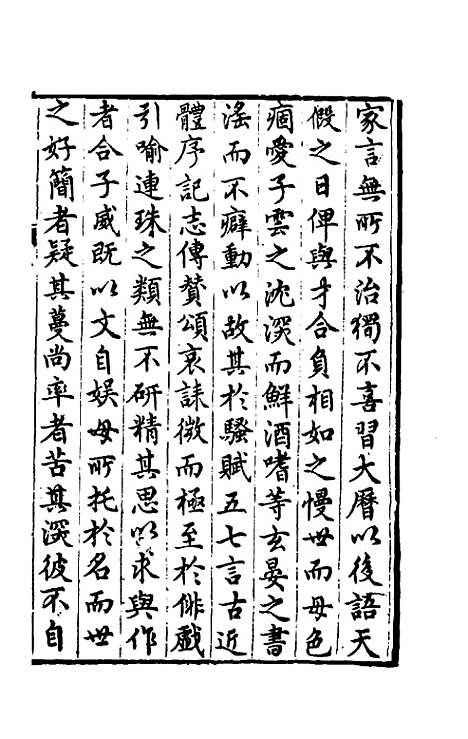 家言無所不治獨不喜習大曆以後語天
假之日俾與才合負相如之慢世而毋色
痼愛子雲之沈深而鮮酒嗜等玄晏之書
淫而不癖動以故其於騷賦五七言古近
體序記志傳贊頌哀誄微而極至於俳戲
引喻連珠之類無不研精其思以求與作
者合子威既以文自娛毋所托於名而世
之好簡者疑其蔓尚率者苦其深彼不自